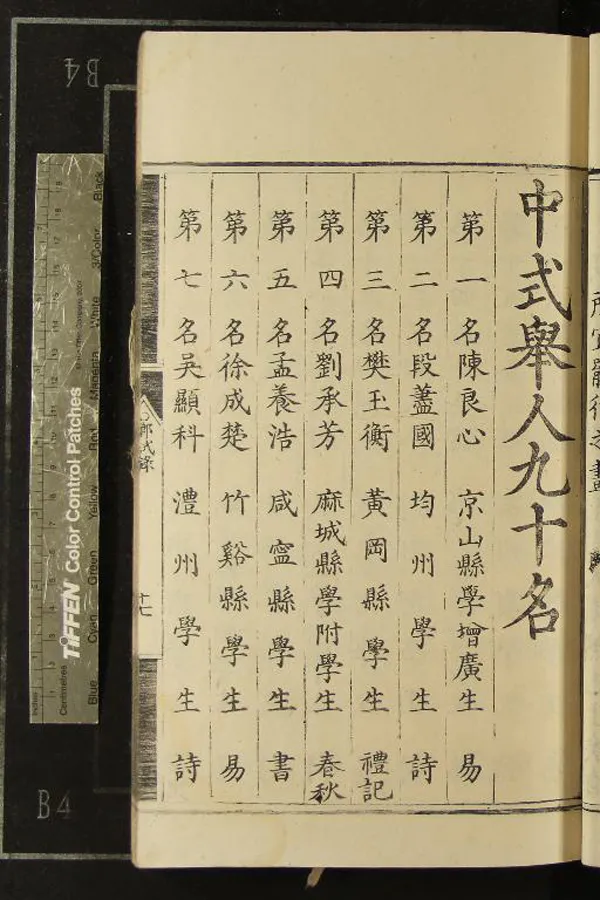 中式舉人九十名
第一名陳良心 京山縣學增廣生 易
第二名段藎國 均州學生 詩
第三名樊玉衡 黃岡縣學生 禮記
第四名劉承芳 麻城縣學附學生 春秋
第五名孟養浩 咸寧縣學生 書
第六名徐成楚 竹谿縣學生 易
第七名吳顯科 澧州學生 詩
十七
B4
B4
TIFFEN Color Control Patches
Blue Cyan Green Yellow Red Magenta White 3/Color Black
Inches
Centimetres